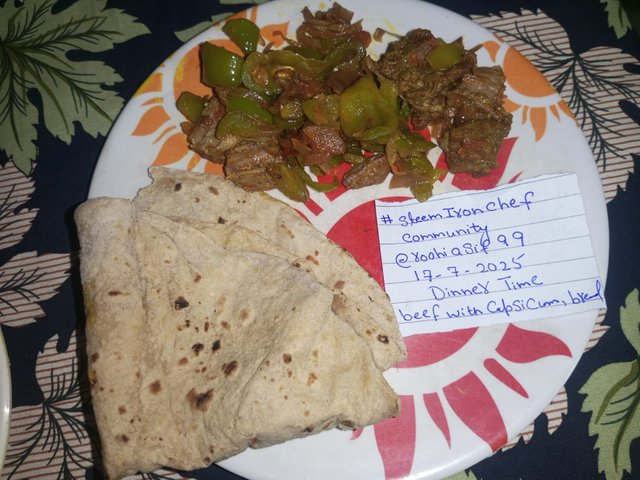 #steemIronchef
community
@roohiasif99
17-7-2025
Dinner Time
beef with Capsicum, bread